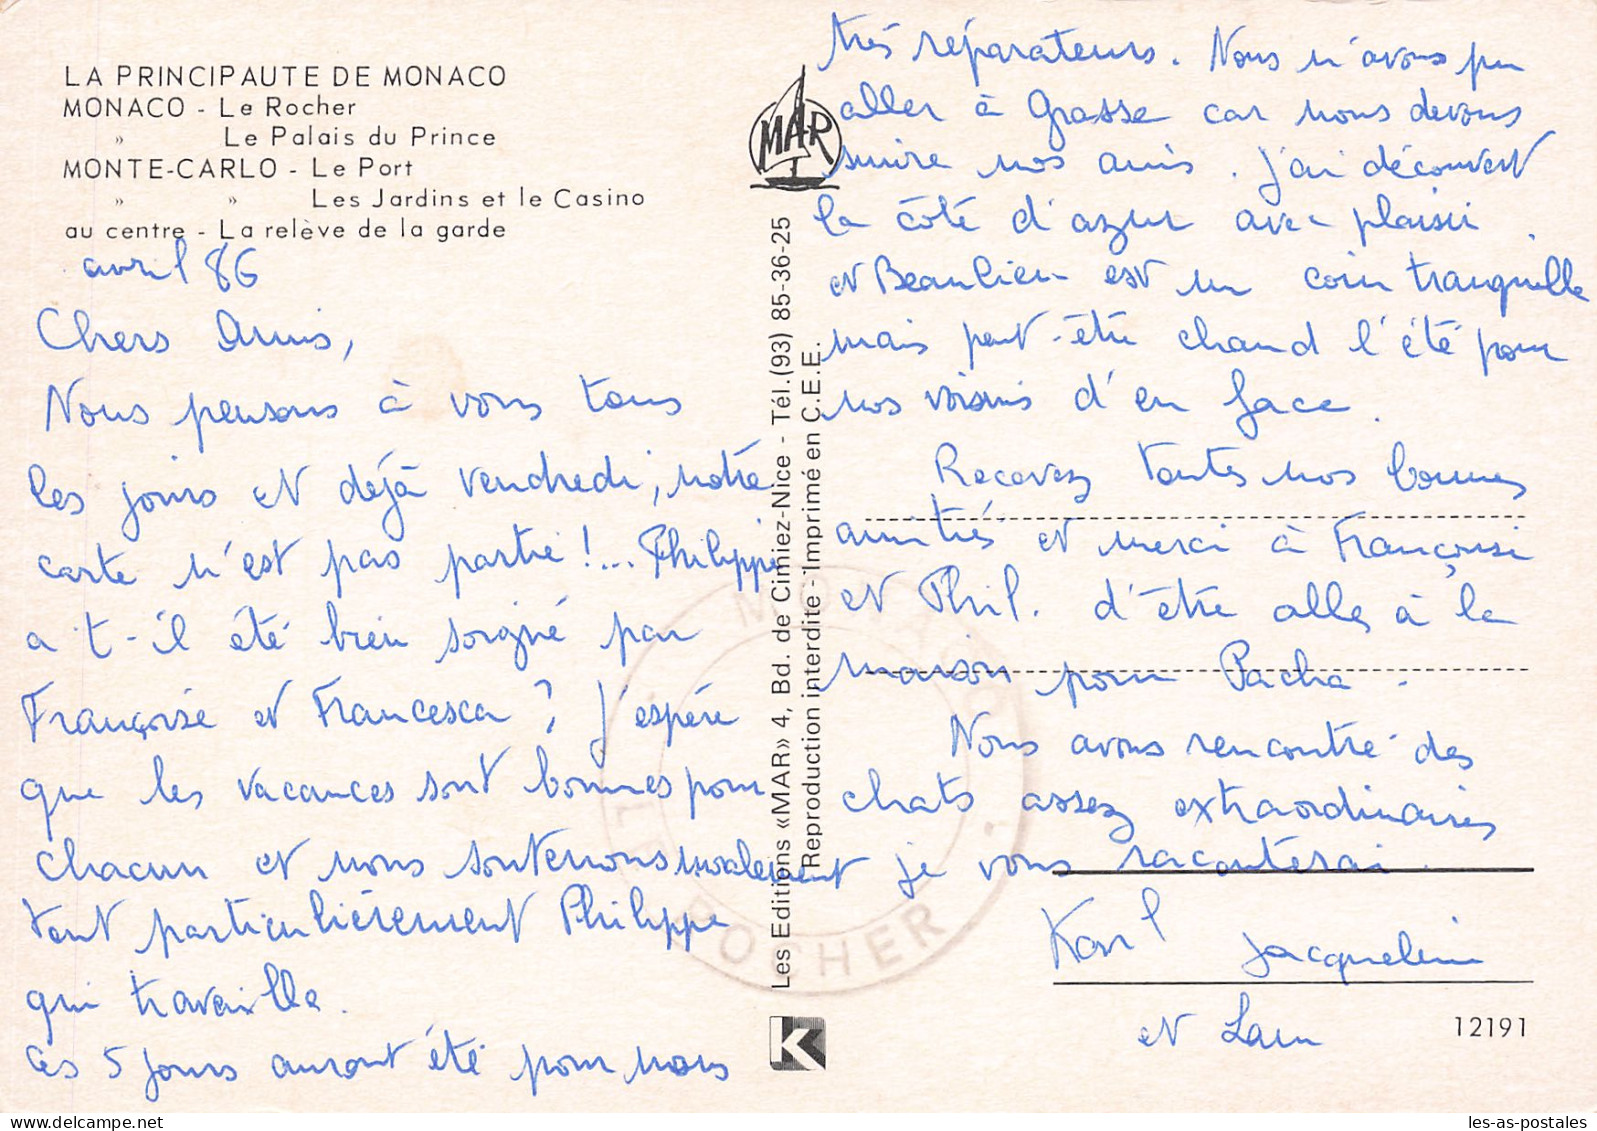 LA PRINCIPAUTE DE MONACO
MONACO - Le Rocher
» Le Palais du Prince
MONTE-CARLO - Le Port
» » Les Jardins et le Casino
au centre - La relève de la garde
avril 86
Chers Amis,
Nous pensons à vous tous
les jours et déjà vendredi, notre
carte n'est pas partie !... Philippe
a t-il été bien soigné par
Françoise et Francesca ? J'espère
que les vacances sont bonnes pour
chacun et nous soutenons moralement
tout particulièrement Philippe
qui travaille.
Ces 5 jours auront été pour nous
MAR
Les Editions «MAR» 4, Bd. de Cimiez-Nice - Tél.(93) 85-36-25
Reproduction interdite - Imprimé en C.E.E.
K
MONACO
LE ROCHER
très réparateurs. Nous n'avons pu
aller à Grasse car nous devons
suivre nos amis. J'ai découvert
la côte d'azur avec plaisir.
et Beaulieu est un coin tranquille
mais peut-être chaud l'été pour
nos voisins d'en face.
Recevez toutes nos bonnes
amitiés et merci à Françoise
et Phil. d'être allé à la
maison pour Pacha.
Nous avons rencontré des
chats assez extraordinaires
je vous raconterai.
Karl Jacqueline
et
12191
les-as-postales